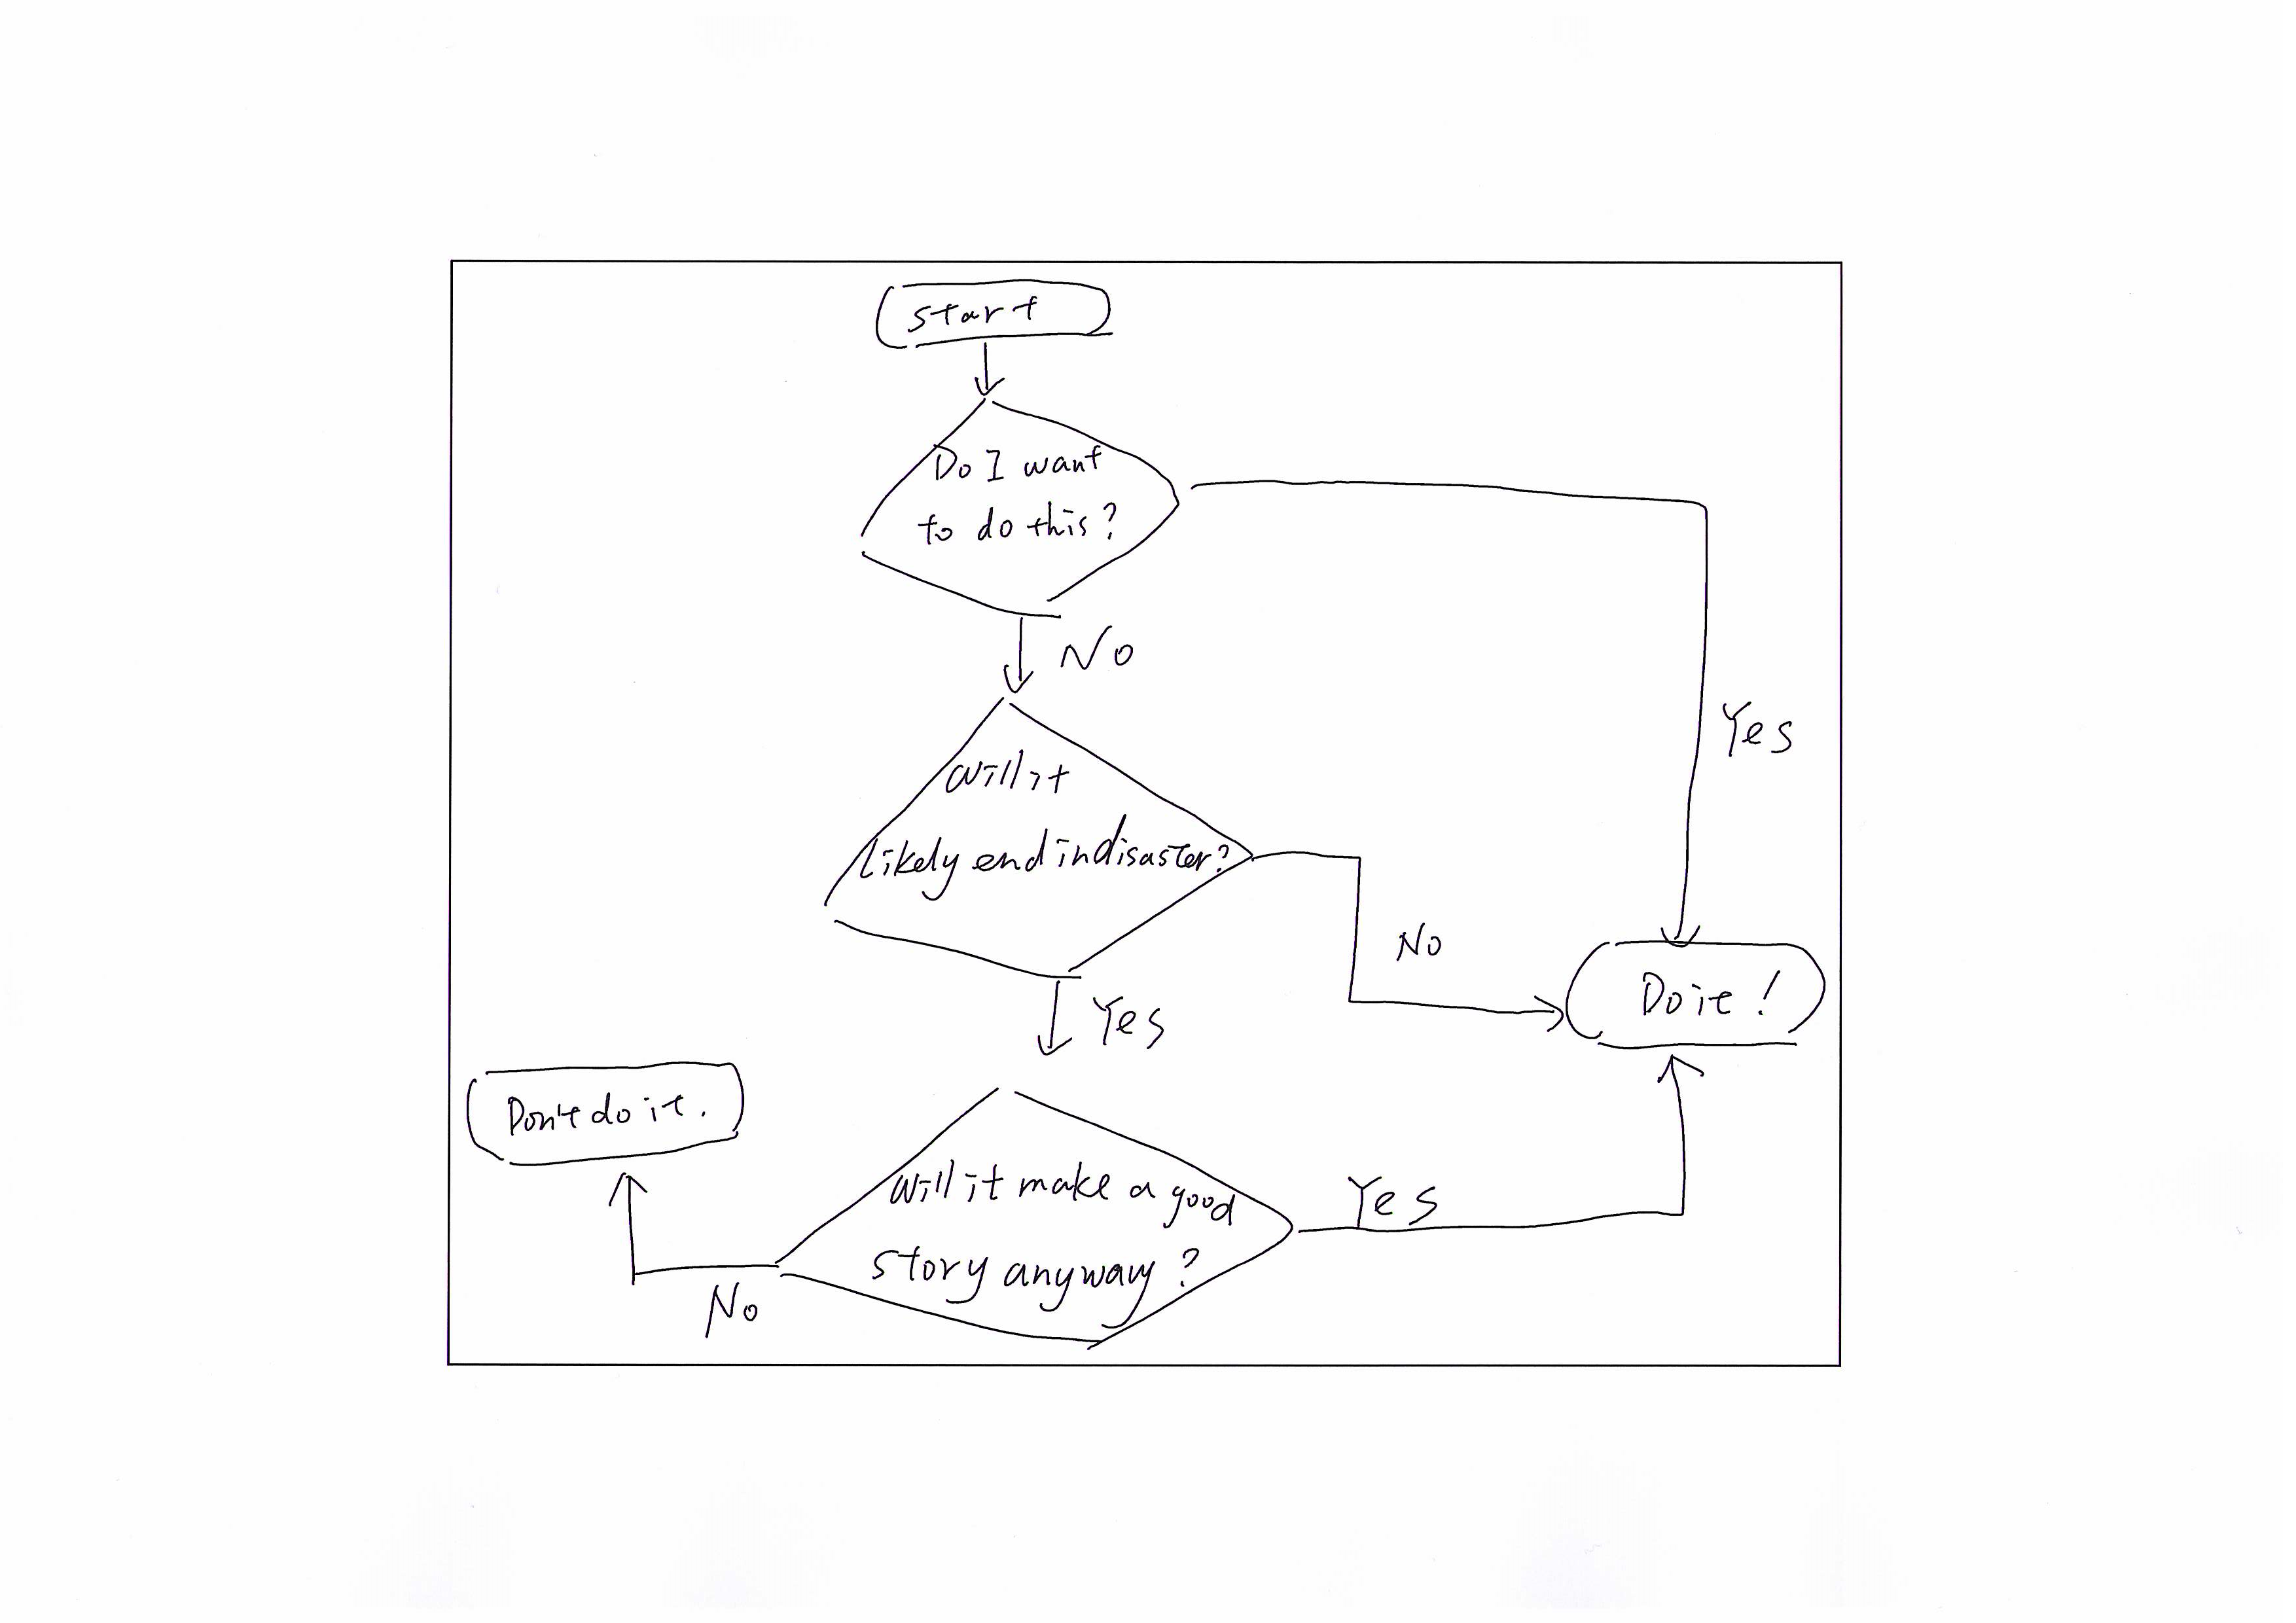 start
Do I want
to do this?
No
Yes
Will it
likely end in disaster?
No
Do it!
Yes
Don't do it.
Will it make a good
story anyway?
Yes
No